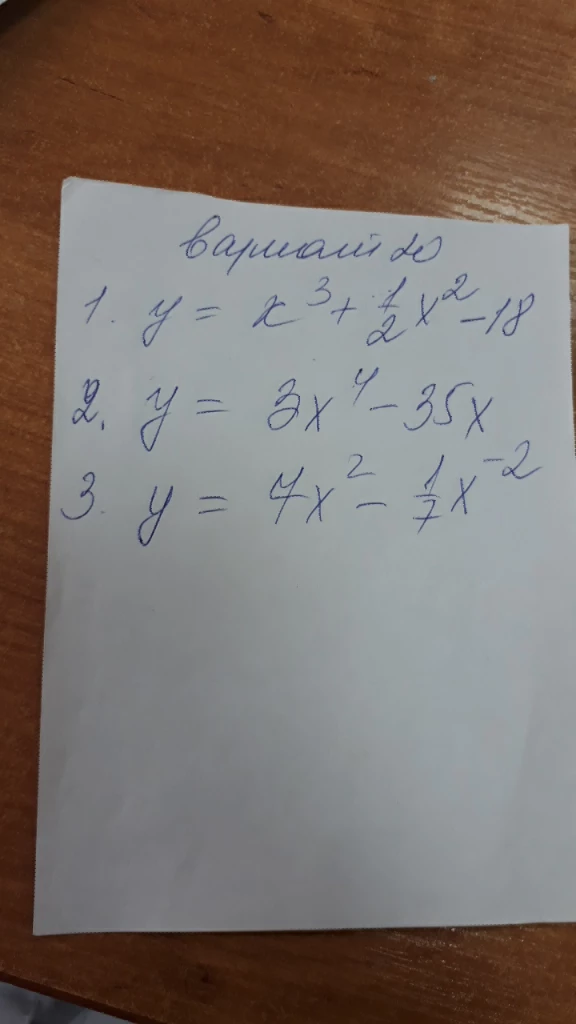 вариант 20
1. y = x³ + 1/2 x² - 18
2. y = 3x⁴ - 35x
3. y = 7x² - 1/7 x⁻²